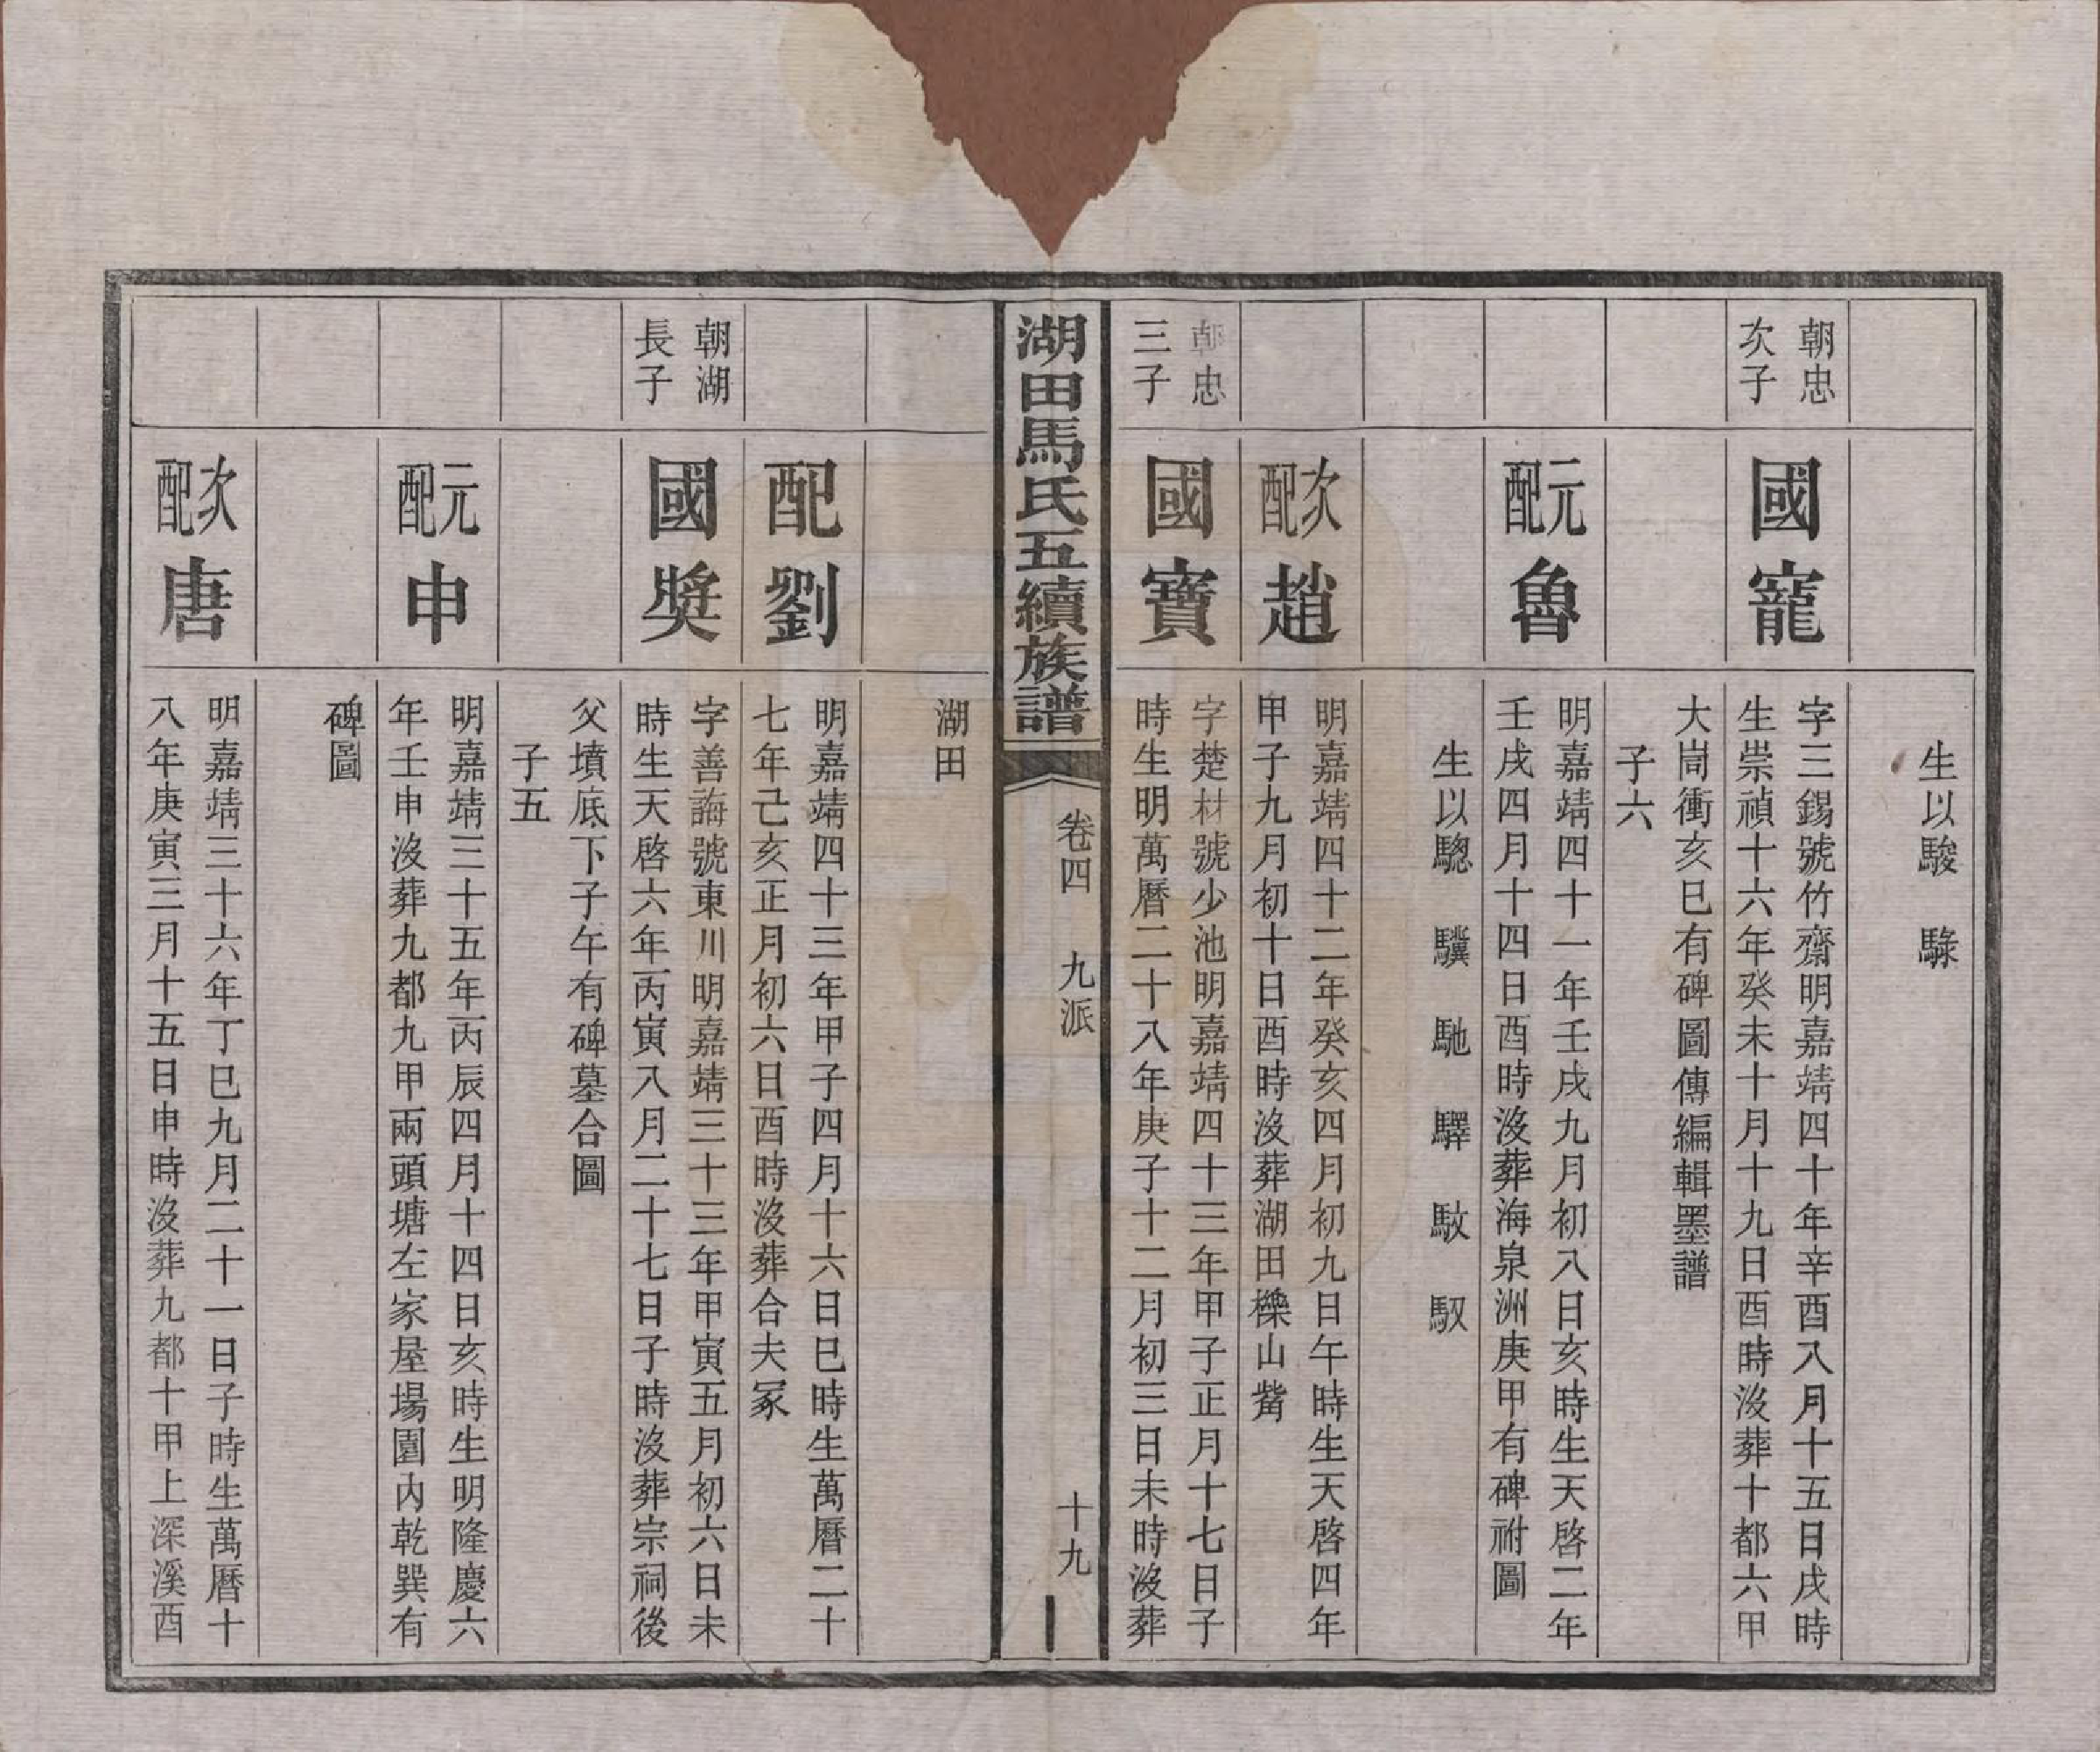 生以駿　騄
朝忠
次子
國寵
字三錫號竹齋明嘉靖四十年辛酉八月十五日戌時
生崇禎十六年癸未十月十九日酉時沒葬十都六甲
大崗衝亥巳有碑圖傳編輯墨譜
子六
元配魯
明嘉靖四十一年壬戌九月初八日亥時生天啓二年
壬戌四月十四日酉時沒葬海泉洲庚甲有碑祔圖
生以驄　驥　馳　驛　馭
次配趙
明嘉靖四十二年癸亥四月初九日午時生天啓四年
甲子九月初十日酉時沒葬湖田櫟山觜
朝忠
三子
國寶
字楚材號少池明嘉靖四十三年甲子正月十七日子
時生明萬曆二十八年庚子十二月初三日未時沒葬
湖田馬氏五續族譜
卷四　九派
十九
湖田
配劉
明嘉靖四十三年甲子四月十六日巳時生萬曆二十
七年己亥正月初六日酉時沒葬合夫冢
朝湖
長子
國奬
字善誨號東川明嘉靖三十三年甲寅五月初六日未
時生天啓六年丙寅八月二十七日子時沒葬宗祠後
父墳底下子午有碑墓合圖
子五
元配申
明嘉靖三十五年丙辰四月十四日亥時生明隆慶六
年壬申沒葬九都九甲兩頭塘左家屋場園內乾巽有
碑圖
次配唐
明嘉靖三十六年丁巳九月二十一日子時生萬曆十
八年庚寅三月十五日申時沒葬九都十甲上深溪酉